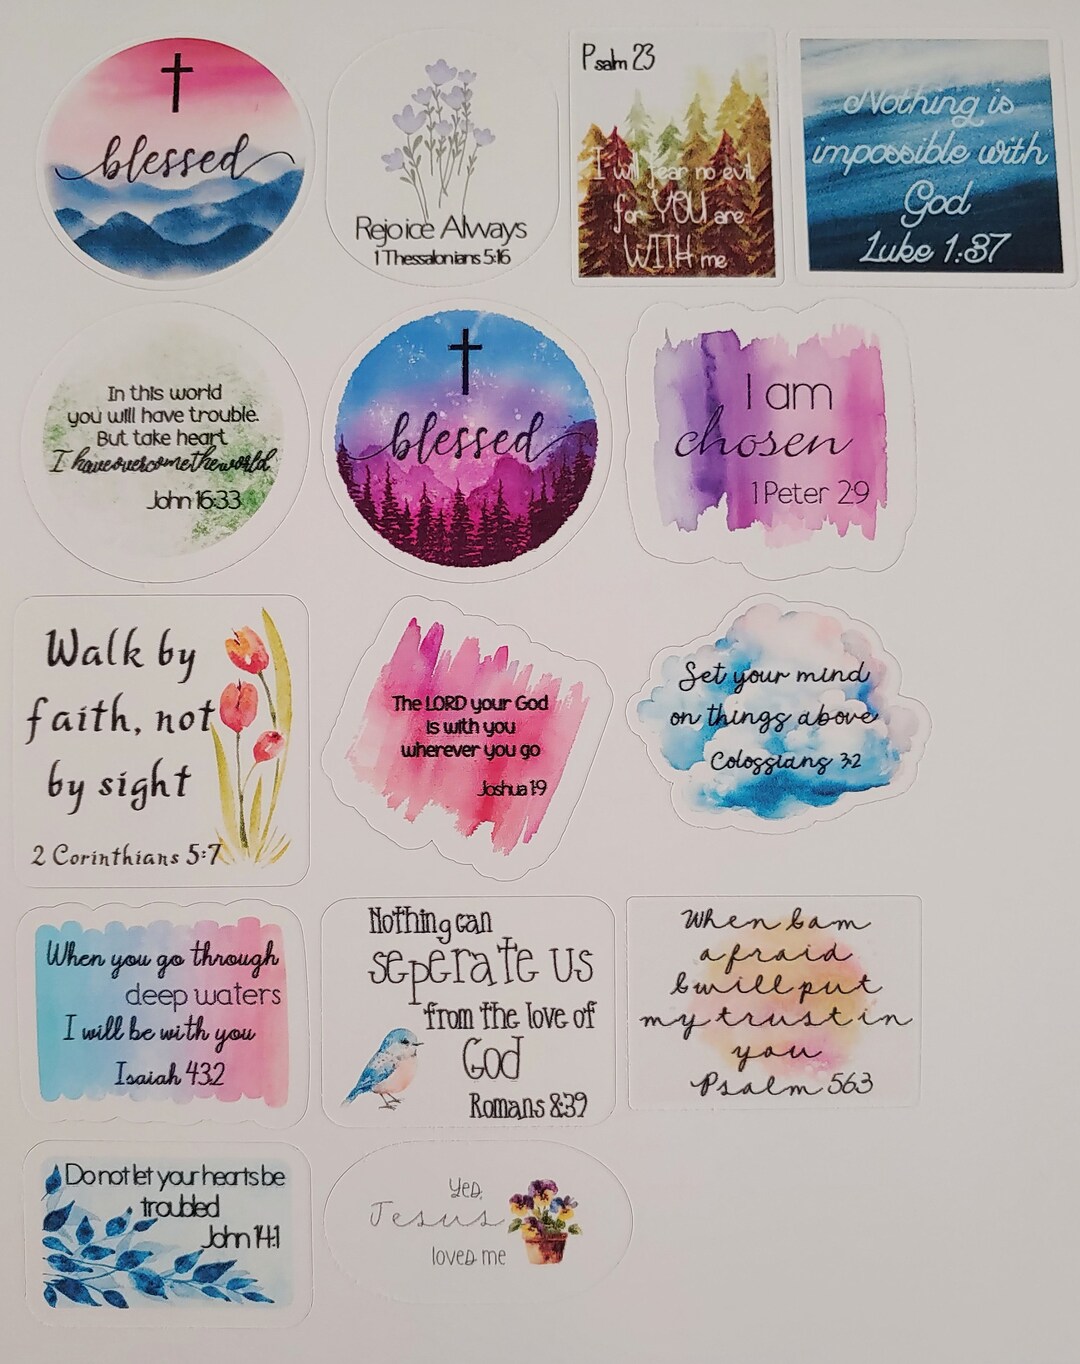 blessed
Rejoice Always
1 Thessalonians 5:16
Psalm 23
I will fear no evil,
for YOU are
WITH me
Nothing is
impossible with
God
Luke 1:37
In this world
you will have trouble.
But take heart
I have overcome the world
John 16:33
blessed
I am
chosen
1 Peter 2:9
Walk by
faith, not
by sight
2 Corinthians 5:7
The LORD your God
is with you
wherever you go
Joshua 1:9
Set your mind
on things above
Colossians 3:2
When you go through
deep waters
I will be with you
Isaiah 43:2
Nothing can
seperate us
from the love of
God
Romans 8:39
When I am
afraid
I will put
my trust in
you
Psalm 56:3
Do not let your hearts be
troubled
John 14:1
Yes,
Jesus
loves me